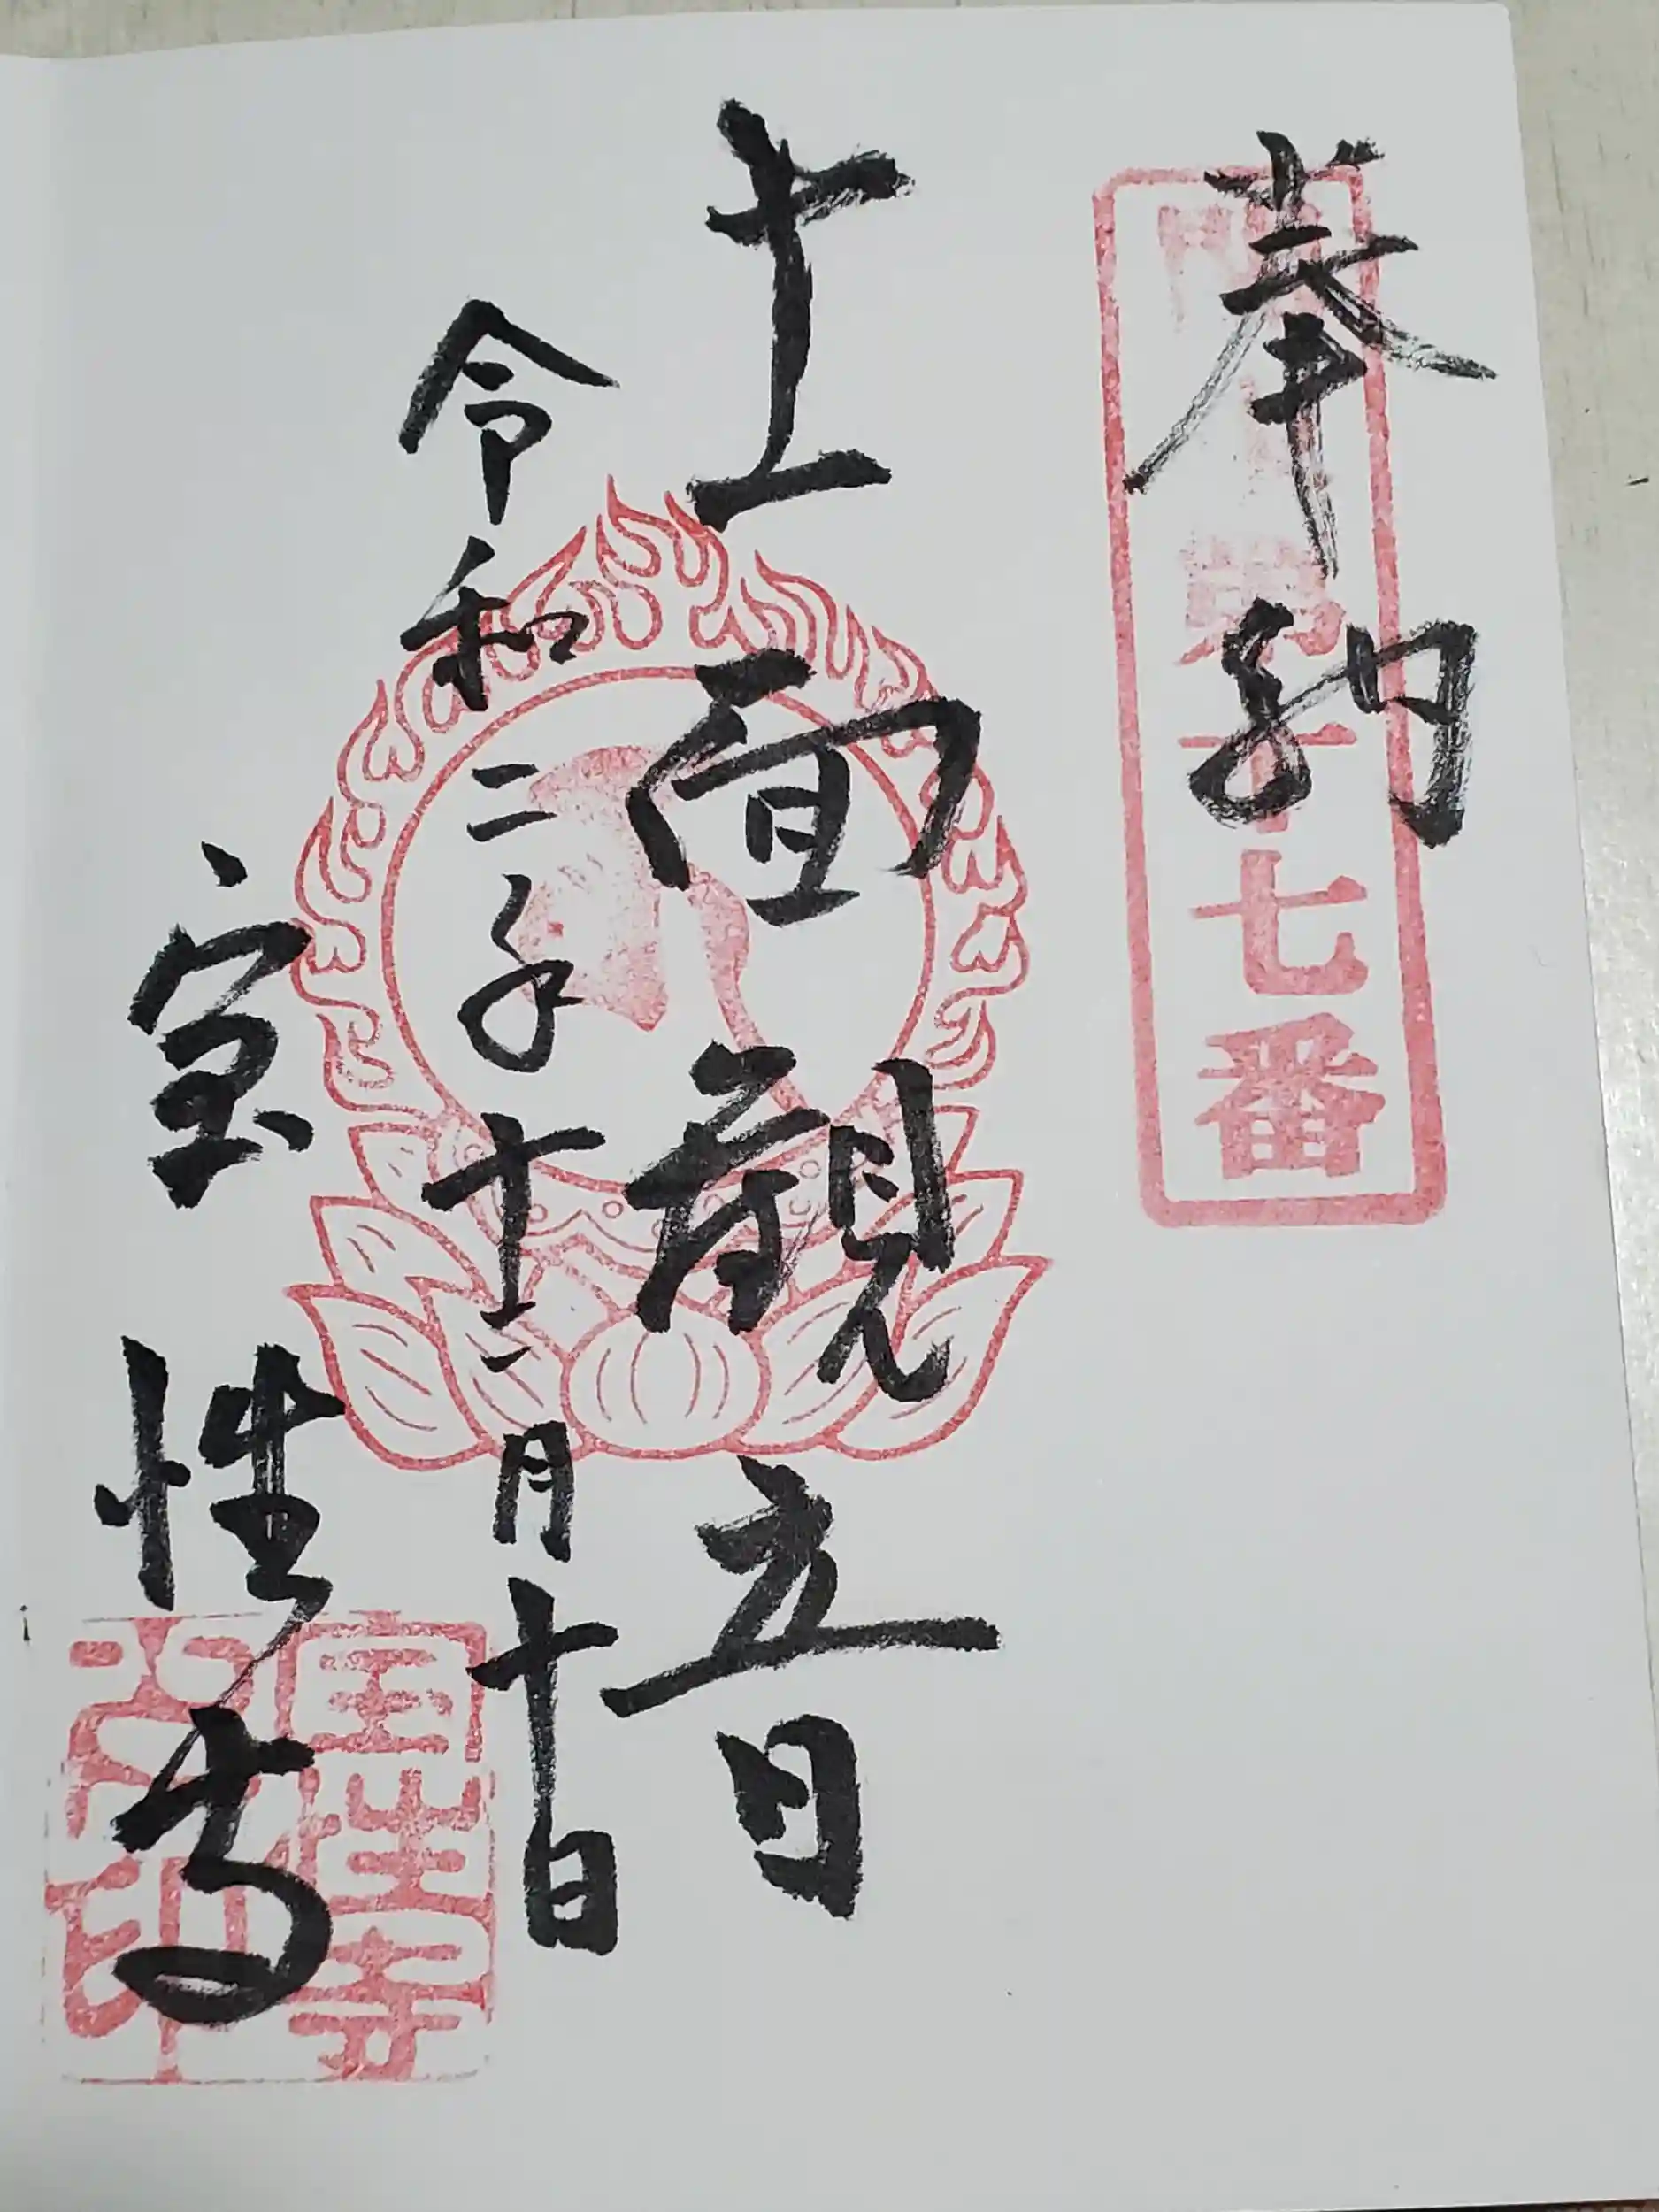 奉納
十七番
十一面観立日
令和二年十二月十日
宝性寺